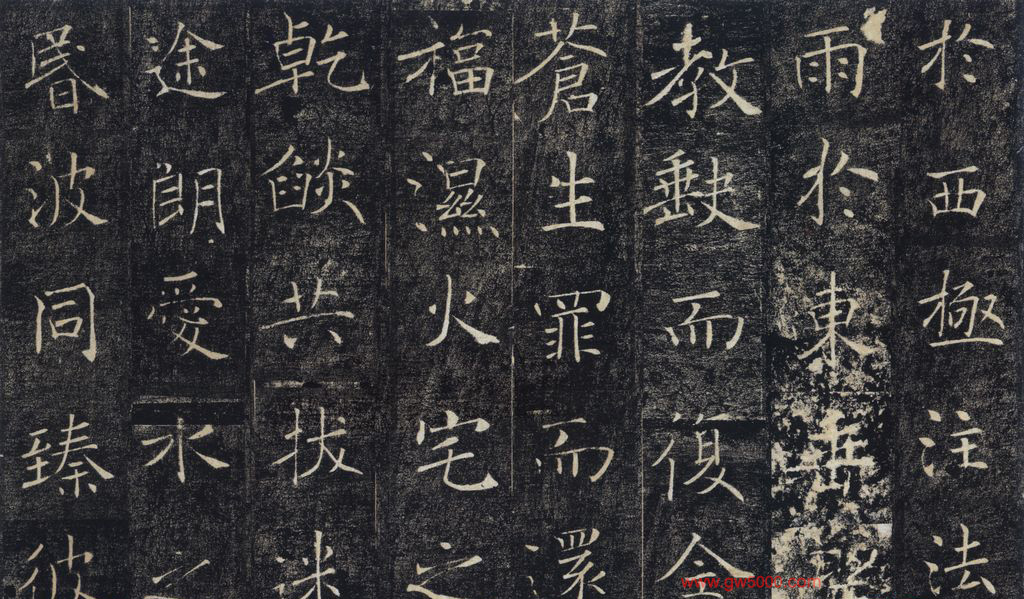 於西極注法
雨於東垂聖
教缺而復全
蒼生罪而還
福濕火宅之
乾燄共拔迷
途朗愛水之
昬波同臻彼
www.gw5000.com